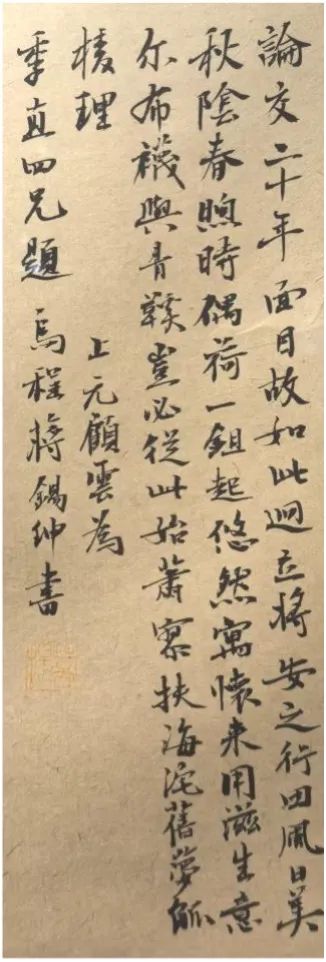 論交二十年面目故如此迥立將安之行田風日美
秋陰春煦時偶荷一鉏起悠然寓懷来用滋生意
尔布襪與青鞵豈必從此始蕭寥扶海垞舊夢觚
棱理 上元顧雲為
季直四兄題 烏程蔣錫紳書